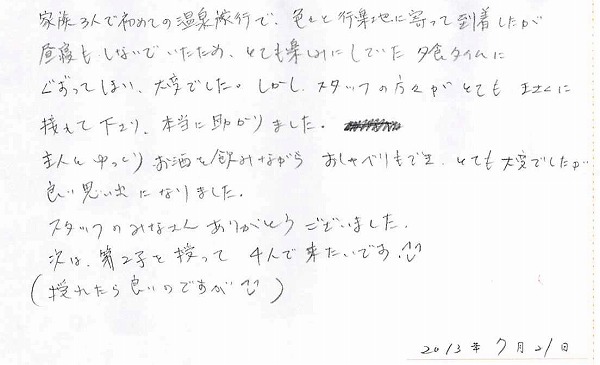 家族3人で初めての温泉旅行で、色々と行楽地に寄って到着したが
昼寝もしないでいたため、とても楽しみにしていた夕食タイムに
ぐずってしまい、大変でした。しかし、スタッフの方々がとても まさくに
接して下さり、本当に助かりました。
主人とゆっくりお酒を飲みながら おしゃべりもでき、とても大変でしたが
良い思い出になりました。
スタッフのみなさんありがとうございました。
次は、第2子を授って 4人で来たいです。
(授れたら良いのですが )
2013年7月21日